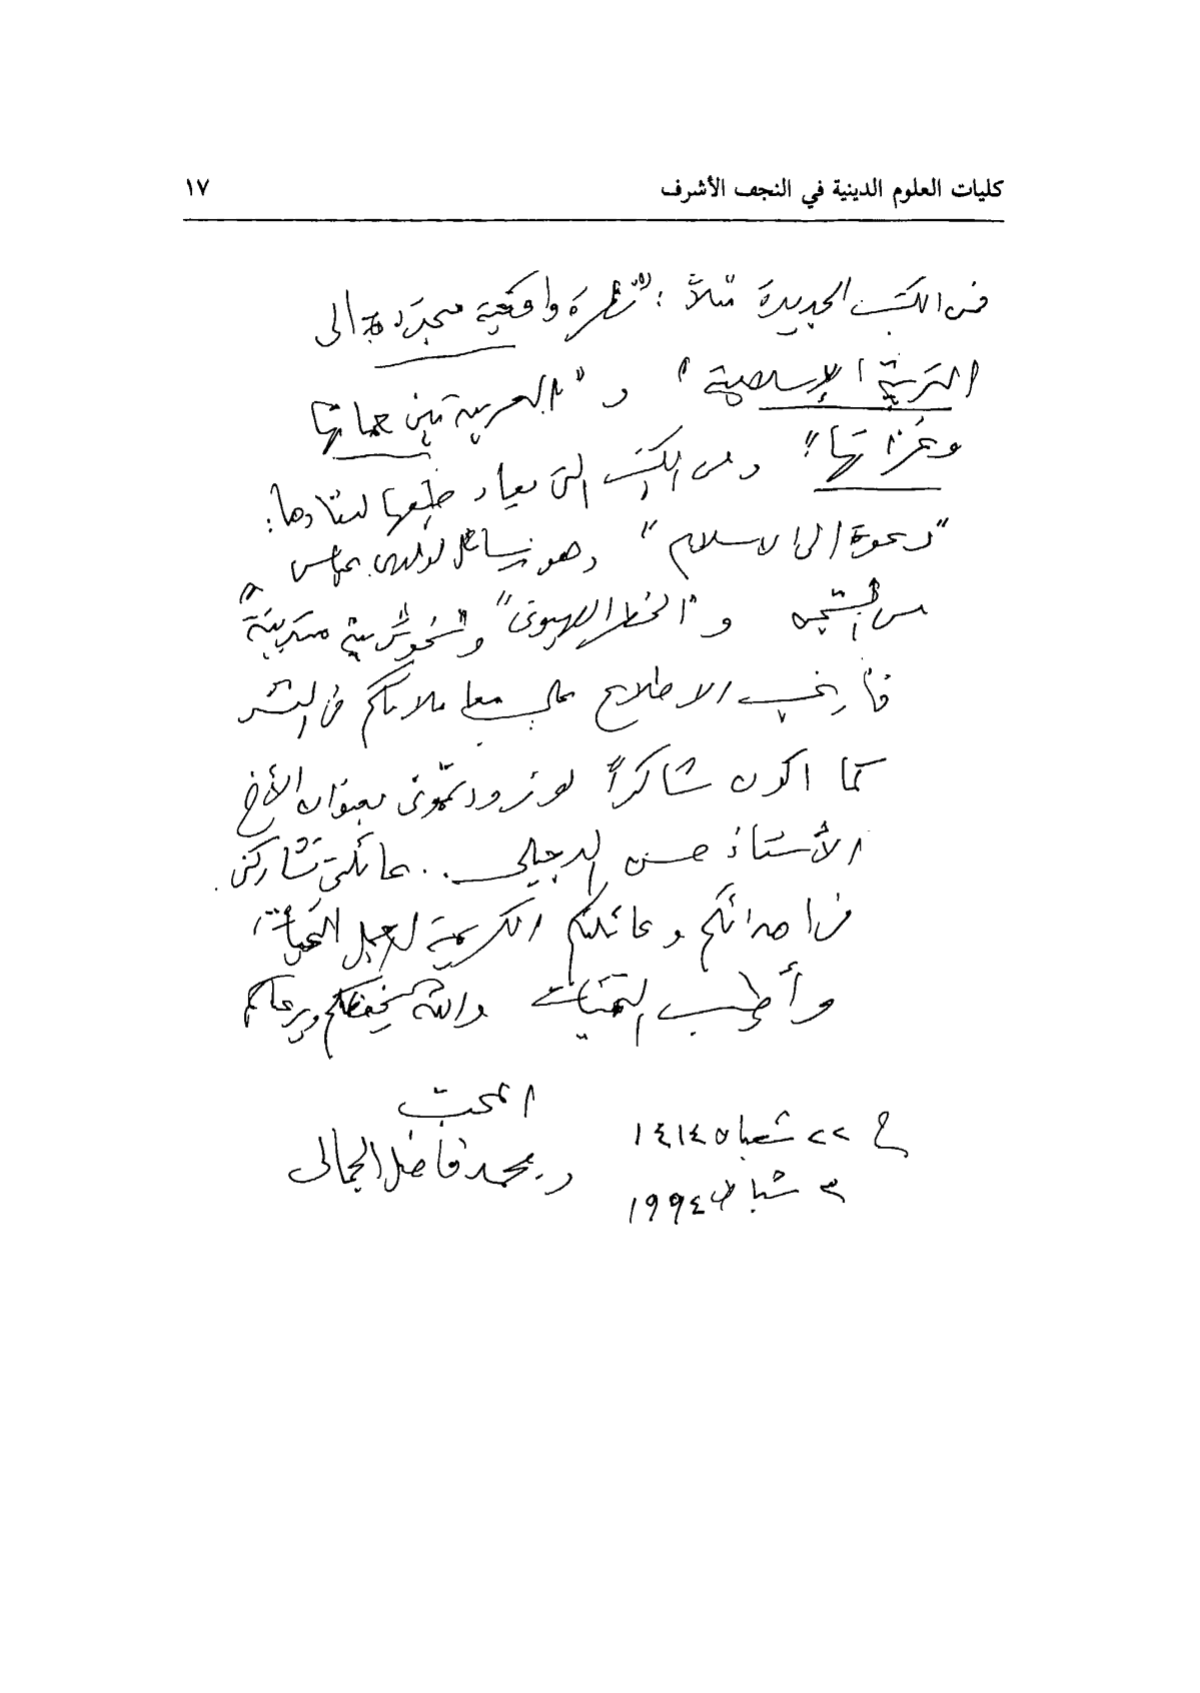 كليات العلوم الدينية في النجف الأشرف ١٧
فمن الكتب الجديدة مثلاً: "نظرة واقعية مجددة الى
التربية الإسلامية" و "العربية بين حماتها
وغزاتها" ومن الكتب التي يعاد طبعها لنفادها:
"دعوة الى الاسلام" وهو رسائل لولدي عباس
من السجن و "الخطر الصهيوني" و "نحو تربية
فأرغب الاطلاع على معاملاتكم في النشر
كما اكون شاكراً لو زودتموني بعنوان الأخ
الأستاذ حسن الدجيلي.. عائلتي تشاركني
في اهدائكم وعائلتكم الكريمة أجمل التحيات
وأطيب التمنيات والله يحفظكم ويرعاكم
المحب
في ٢٢ شعبان ١٤١٤ د. محمد فاضل الجمالي
٣ شباط ١٩٩٤